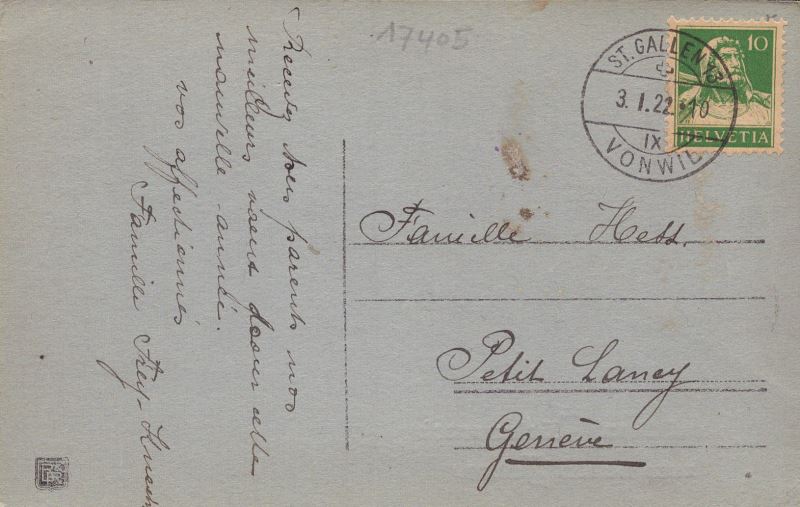 17405
ST. GALLEN 13
3. I. 22.-10
IX
VONWIL
10
HELVETIA
Recevez tous parents nos
meilleurs voeux pour cette
nouvelle année.
vos affectionnés
Famille Frey-Knecht
Famille Hess.
Petit Lancy
Genève